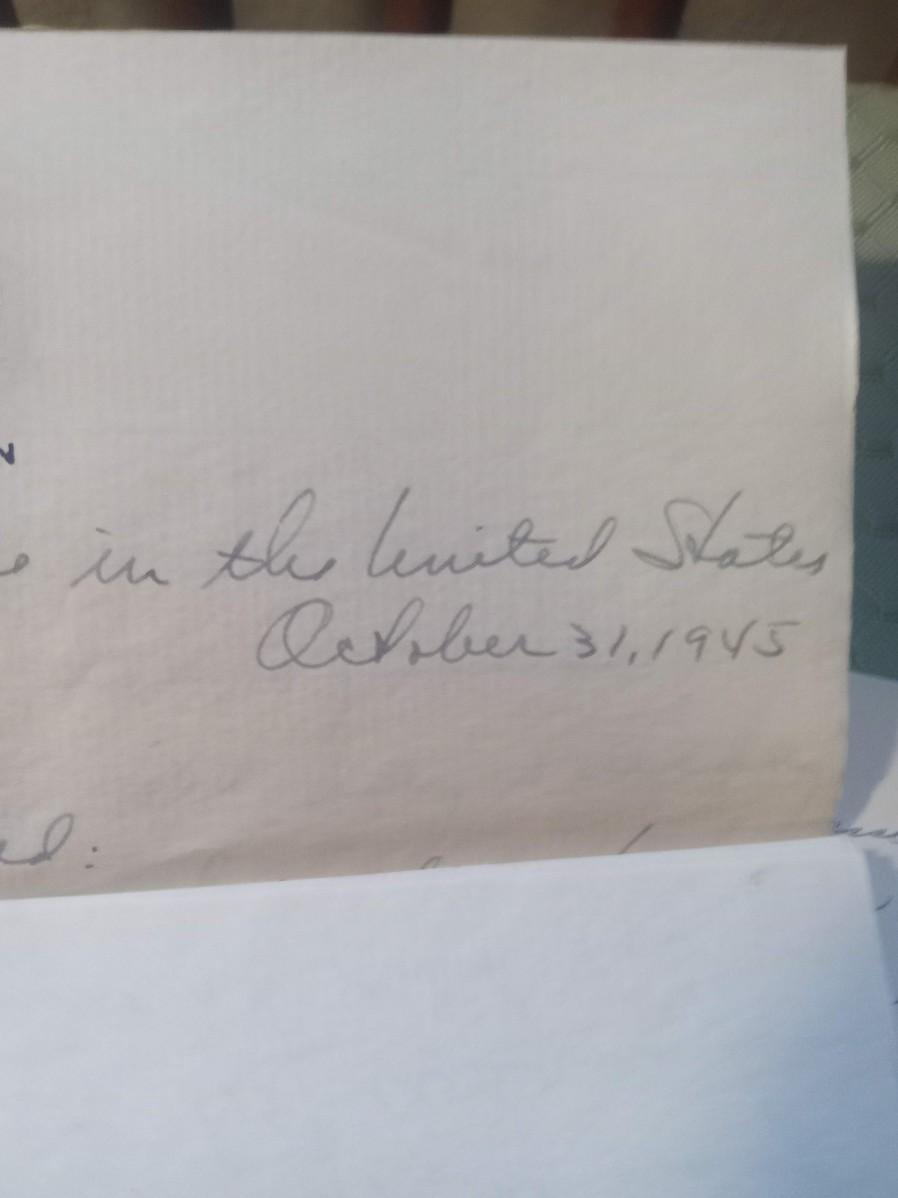 in the United States
October 31, 1945